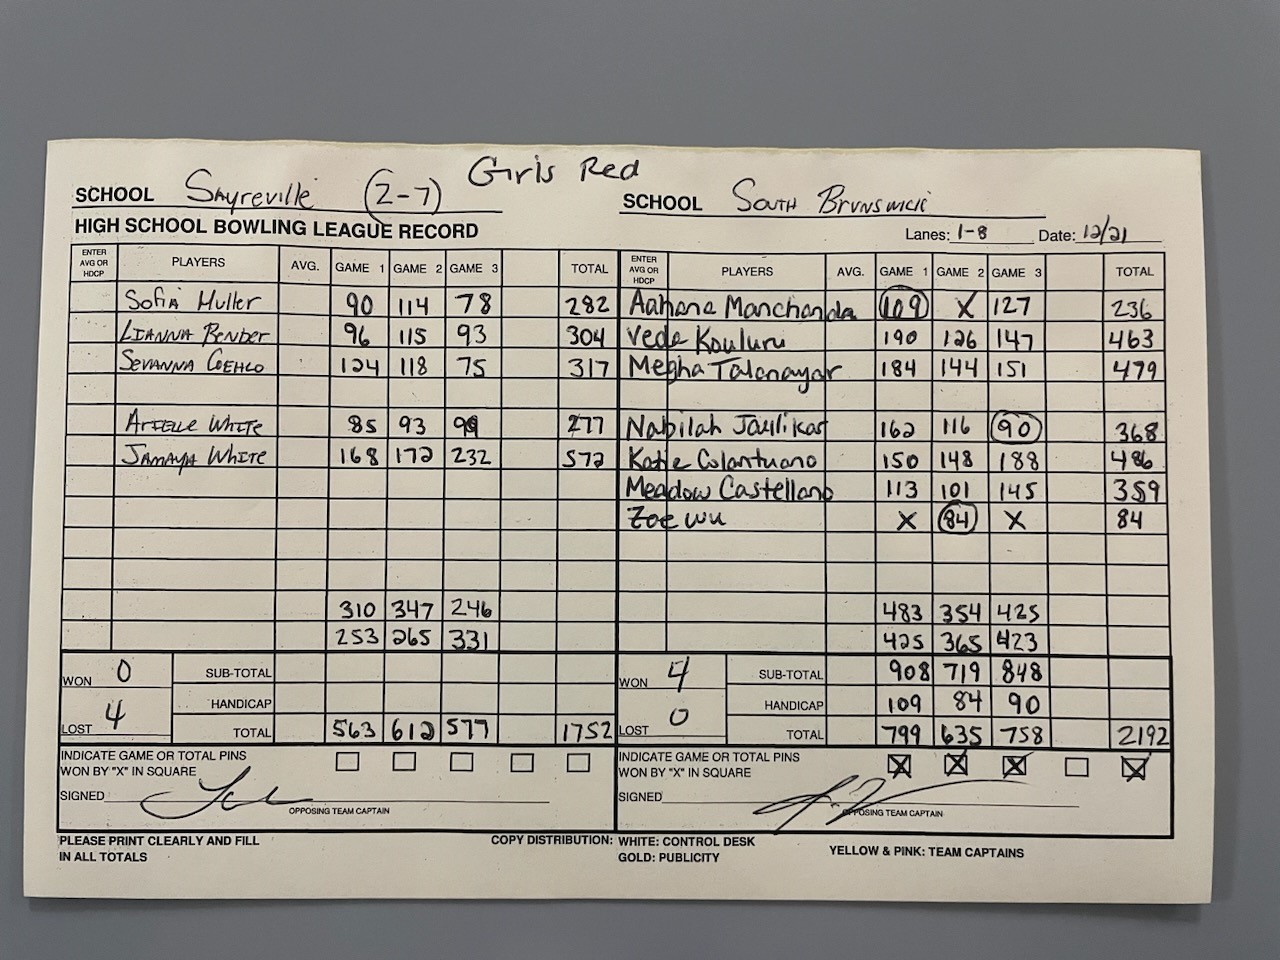 Girls Red
SCHOOL Sayreville (2-7) SCHOOL South Brunswick
HIGH SCHOOL BOWLING LEAGUE RECORD Lanes: 1-8 Date: 12/21
ENTER AVG OR HDCP PLAYERS AVG. GAME 1 GAME 2 GAME 3 TOTAL ENTER AVG OR HDCP PLAYERS AVG. GAME 1 GAME 2 GAME 3 TOTAL
Sofia Muller 90 114 78 282 Aahana Manchanda 109 X 127 236
Lianna Bender 96 115 93 304 Veda Kouluru 190 126 147 463
Sevanna Coehlo 124 118 75 317 Megha Talanayar 184 144 151 479
Arielle White 85 93 99 277 Nabilah Jaulikar 162 116 90 368
Jamaya White 168 172 232 572 Katie Colantuano 150 148 188 486
Meadow Castellano 113 101 145 359
Zoe Wu X 84 X 84
310 347 246 483 354 425
253 265 331 425 365 423
WON 0 SUB-TOTAL WON 4 SUB-TOTAL 908 719 848
HANDICAP HANDICAP 109 84 90
LOST 4 TOTAL 563 612 577 1752 LOST 0 TOTAL 799 635 758 2192
INDICATE GAME OR TOTAL PINS INDICATE GAME OR TOTAL PINS
WON BY "X" IN SQUARE WON BY "X" IN SQUARE X X X X
SIGNED SIGNED
OPPOSING TEAM CAPTAIN OPPOSING TEAM CAPTAIN
PLEASE PRINT CLEARLY AND FILL COPY DISTRIBUTION: WHITE: CONTROL DESK YELLOW & PINK: TEAM CAPTAINS
IN ALL TOTALS GOLD: PUBLICITY